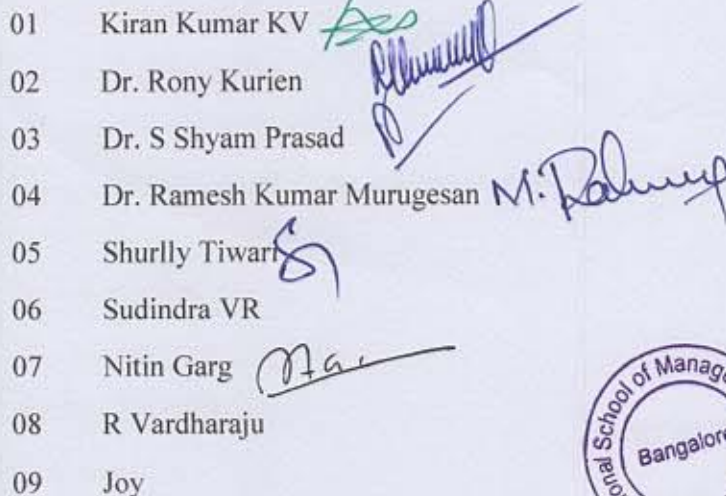 01 Kiran Kumar KV
02 Dr. Rony Kurien
03 Dr. S Shyam Prasad
04 Dr. Ramesh Kumar Murugesan M.
05 Shurlly Tiwari
06 Sudindra VR
07 Nitin Garg
08 R Vardharaju
09 Joy
School of
Bangalore